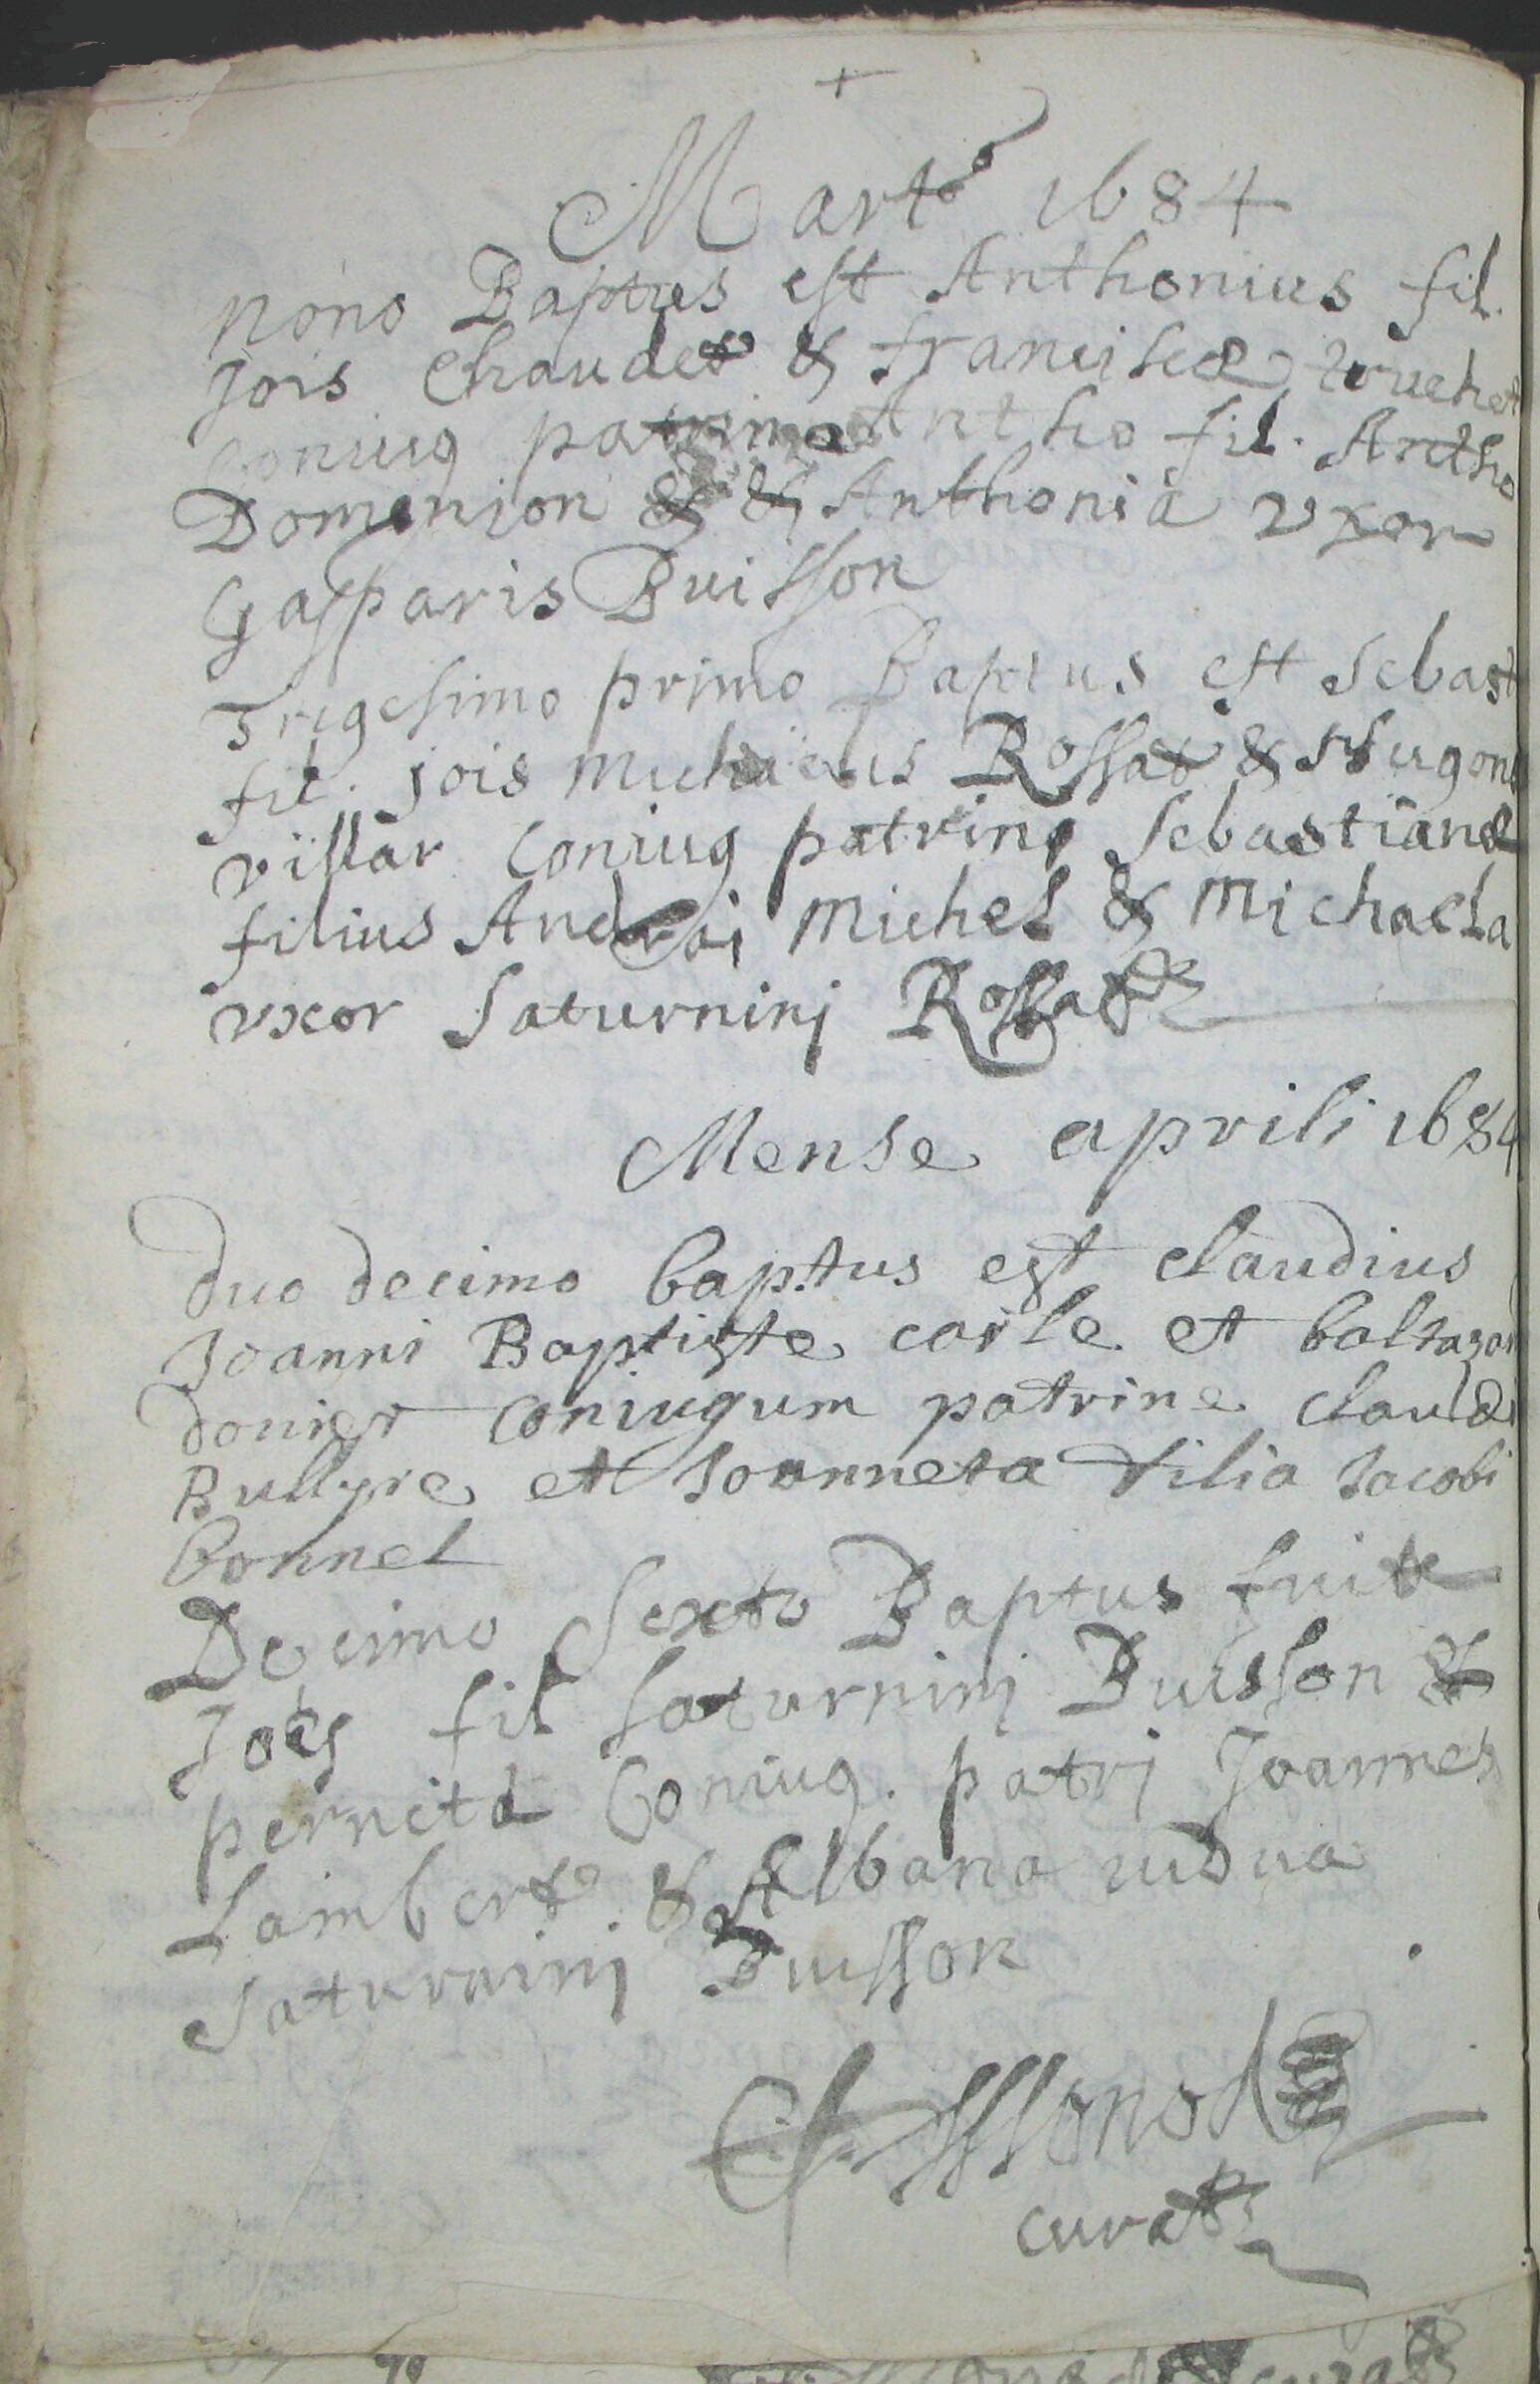 +
Mart 1684
nono Baptus est Anthonius fil.
Jois Chaudet & franciscæ
coniug patrino Antho fil. Antho
Domenjon & & Anthonia vxor
Gasparis Buisson
Trigesimo primo Baptus est Sebast
fil. jois michaelis Rossat & Hugon
villar coniug patrino Sebastiano
filius Andræi michel & Michaela
vxor Saturninj Rossat
Mense aprili 1684
duo decimo baptus est claudius
Joanni Baptiste carle et baltasar
donier coniugum patrine claudi
Bullyre et Joanneta filia Jacobi
bonnel
Decimo Sexto Baptus fuit
Joês fil Saturninj Buisson &
perneta Coniug. patrj Joannes
Lambert & Albana vidua
Saturninj Buisson
curat